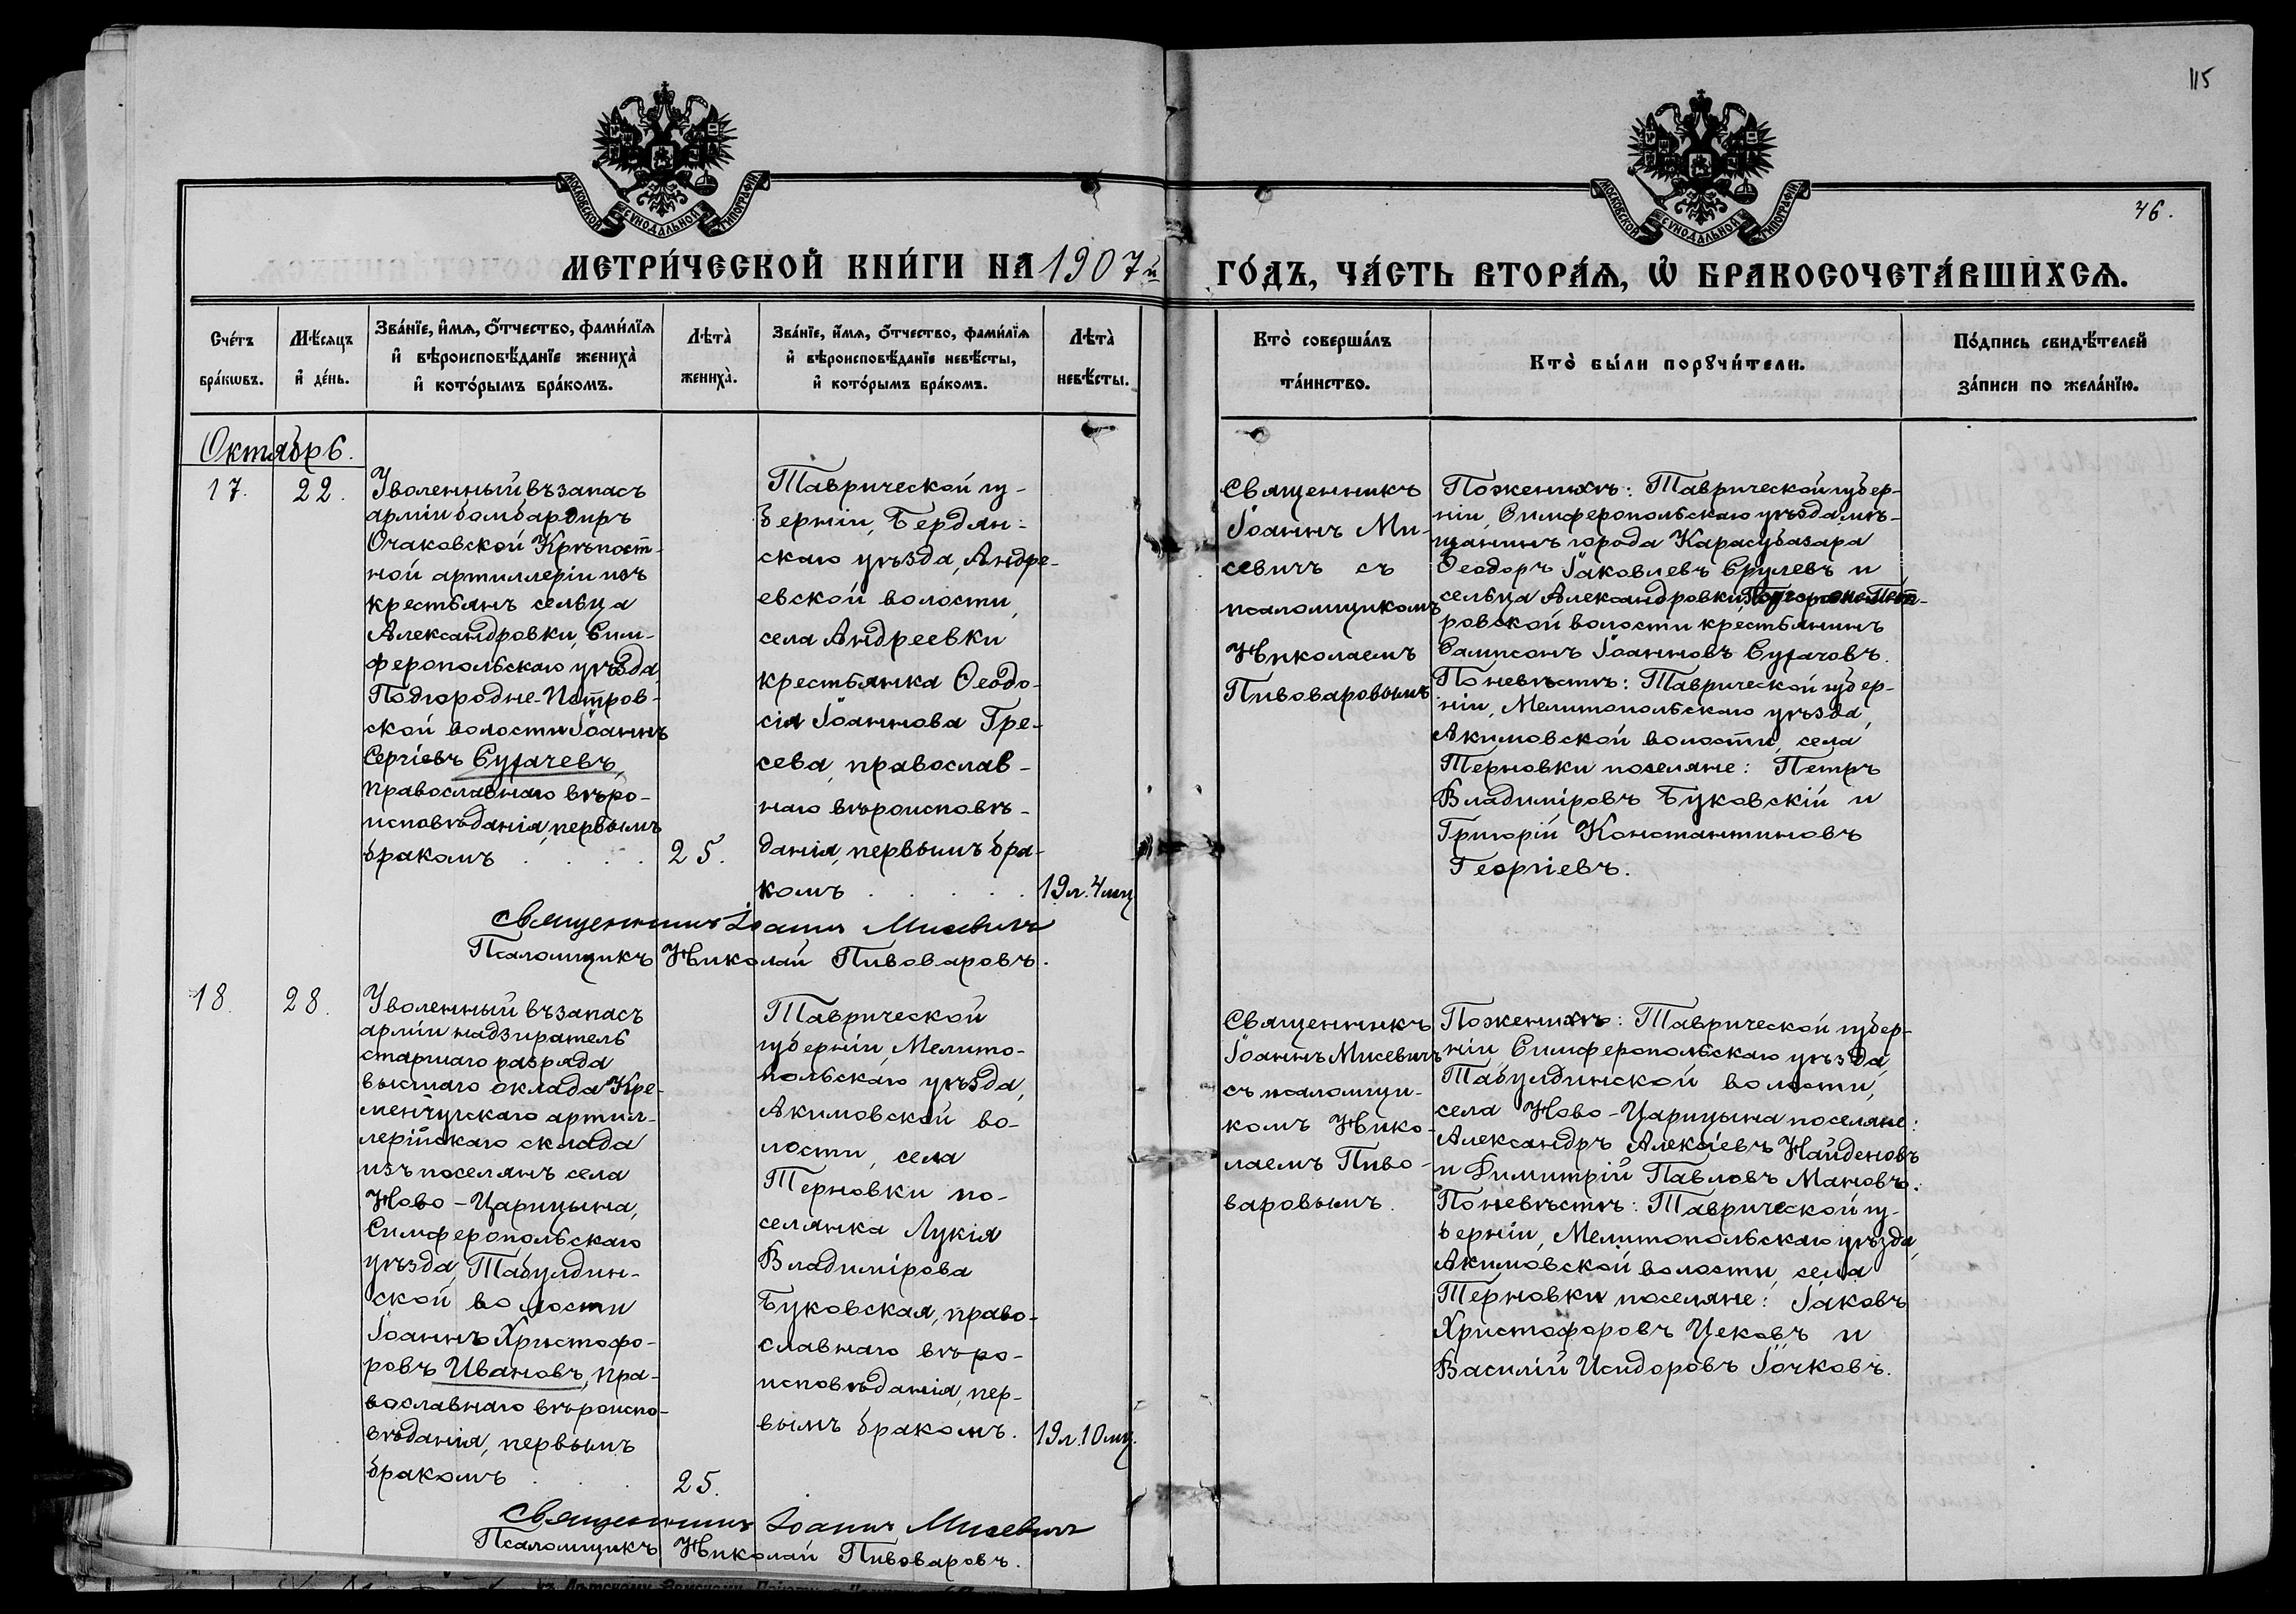 115
46.
МОСКОВСКОЙ СѴНОДАЛЬНОЙ ТИПОГРАФІИ
МОСКОВСКОЙ СѴНОДАЛЬНОЙ ТИПОГРАФІИ
МЕТРИ́ЧЕСКОЙ КНИ́ГИ НА 1907й
ГО́ДЪ, ЧА́СТЬ ВТОРА́Ѧ, Ѡ҆ БРАКОСОЧЕТА́ВШИХСѦ.
Сче́тъ
бра́кѡвъ.
Мѣ́сяцъ
и҆ де́нь.
Зва́нїе, и҆́мѧ, ѻ҆́тчество, фами́лїѧ
и҆ вѣроисповѣ́данїе жениха̀
и҆ кото́рымъ бра́комъ.
Лѣта̀
жениха̀.
Зва́нїе, и҆́мѧ, ѻ҆́тчество, фами́лїѧ
и҆ вѣроисповѣ́данїе невѣ́сты,
и҆ кото́рымъ бра́комъ.
Лѣта̀
невѣ́сты.
Кто̀ соверша́лъ
та́инство.
Кто̀ бы́ли порꙋчи́тели.
По́дпись свидѣ́телей
за́писи по жела́нїю.
Октябрь.
17.
22.
Уволенный въ запасъ
арміи бомбардиръ
Очаковской Крѣпост-
ной артиллеріи изъ
крестьянъ сельца
Александровки, Сим-
феропольскаго уѣзда,
Подгородне-Петров-
ской волости Іоаннъ
Сергіевъ Сугачевъ,
православнаго вѣро-
исповѣданія, первымъ
бракомъ . . . .
25.
Таврической гу-
берніи, Бердян-
скаго уѣзда, Андре-
евской волости,
села Андреевки
крестьянка Ѳеодо-
сія Іоаннова Гре-
сева, православ-
наго вѣроисповѣ-
данія, первымъ бра-
комъ . . . . .
19 л. 4 мц
Священникъ Іоаннъ Мисевичъ
Псаломщикъ Николай Пивоваровъ.
Священникъ
Іоаннъ Ми-
севичъ съ
псаломщикомъ
Николаемъ
Пивоваровымъ
По женихѣ: Таврической губер-
ніи, Симферопольскаго уѣзда, мѣ-
щанинъ города Карасубазара
Ѳеодоръ Іаковлевъ Срулевъ и
сельца Александровки, Подгородне-Пет-
ровской волости крестьянинъ
Сампсонъ Іоанновъ Сугачовъ.
По невѣстѣ: Таврической губер-
ніи, Мелитопольскаго уѣзда,
Акимовской волости, села
Терновки поселяне: Петръ
Владиміровъ Буковскій и
Григорій Константиновъ
Георгіевъ.
18.
28.
Уволенный въ запасъ
арміи надзиратель
старшаго разряда
высшаго оклада Кре-
менчугскаго артил-
лерійскаго склада
изъ поселянъ села
Ново-Царицына,
Симферопольскаго
уѣзда, Табулдин-
ской волости
Іоаннъ Христофо-
ровъ Ивановъ, пра-
вославнаго вѣроиспо-
вѣданія, первымъ
бракомъ . . .
25.
Таврической
губерніи, Мелито-
польскаго уѣзда,
Акимовской во-
лости, села
Терновки по-
селянка Лукія
Владимірова
Буковская, право-
славнаго вѣро-
исповѣданія, пер-
вымъ бракомъ.
19 л. 10 мц.
Священникъ Іоаннъ Мисевичъ
Псаломщикъ Николай Пивоваровъ.
Священникъ
Іоаннъ Мисевичъ
съ псаломщи-
комъ Нико-
лаемъ Пиво-
варовымъ.
По женихѣ: Таврической губер-
ніи Симферопольскаго уѣзда,
Табулдинской волости,
села Ново-Царицына поселяне:
Александръ Алексіевъ Найденовъ
и Димитрій Павловъ Мановъ.
По невѣстѣ: Таврической гу-
берніи, Мелитопольскаго уѣзда,
Акимовской волости, села
Терновки поселяне: Іаковъ
Христофоровъ Цековъ и
Василій Исидоровъ Іочковъ.